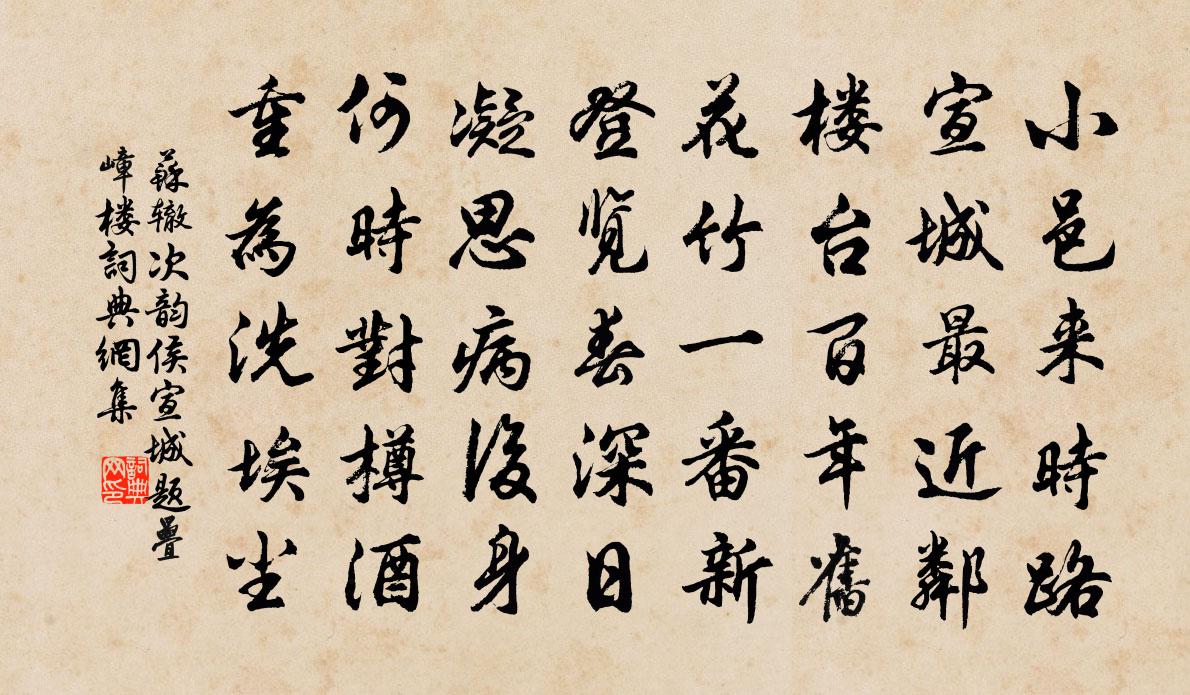 小邑来時路
宣城最近鄰
楼台百年舊
花竹一番新
登览春深日
凝思病後身
何時對樽酒
重為洗埃尘
蘇辙次韵侯宣城题疊
嶂楼詞典網集
詞典网印